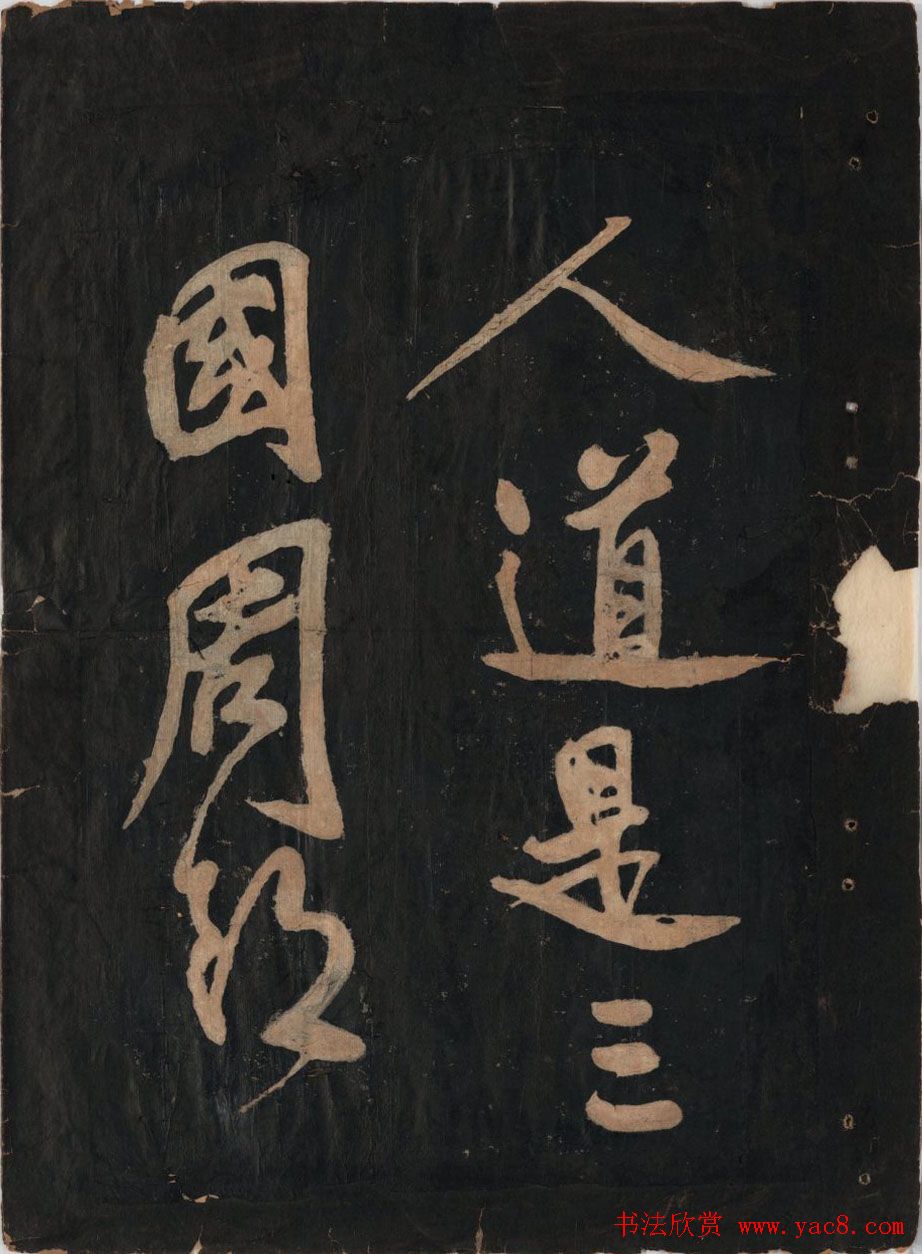 人道是三
國周郎
书法欣赏 www.yac8.com